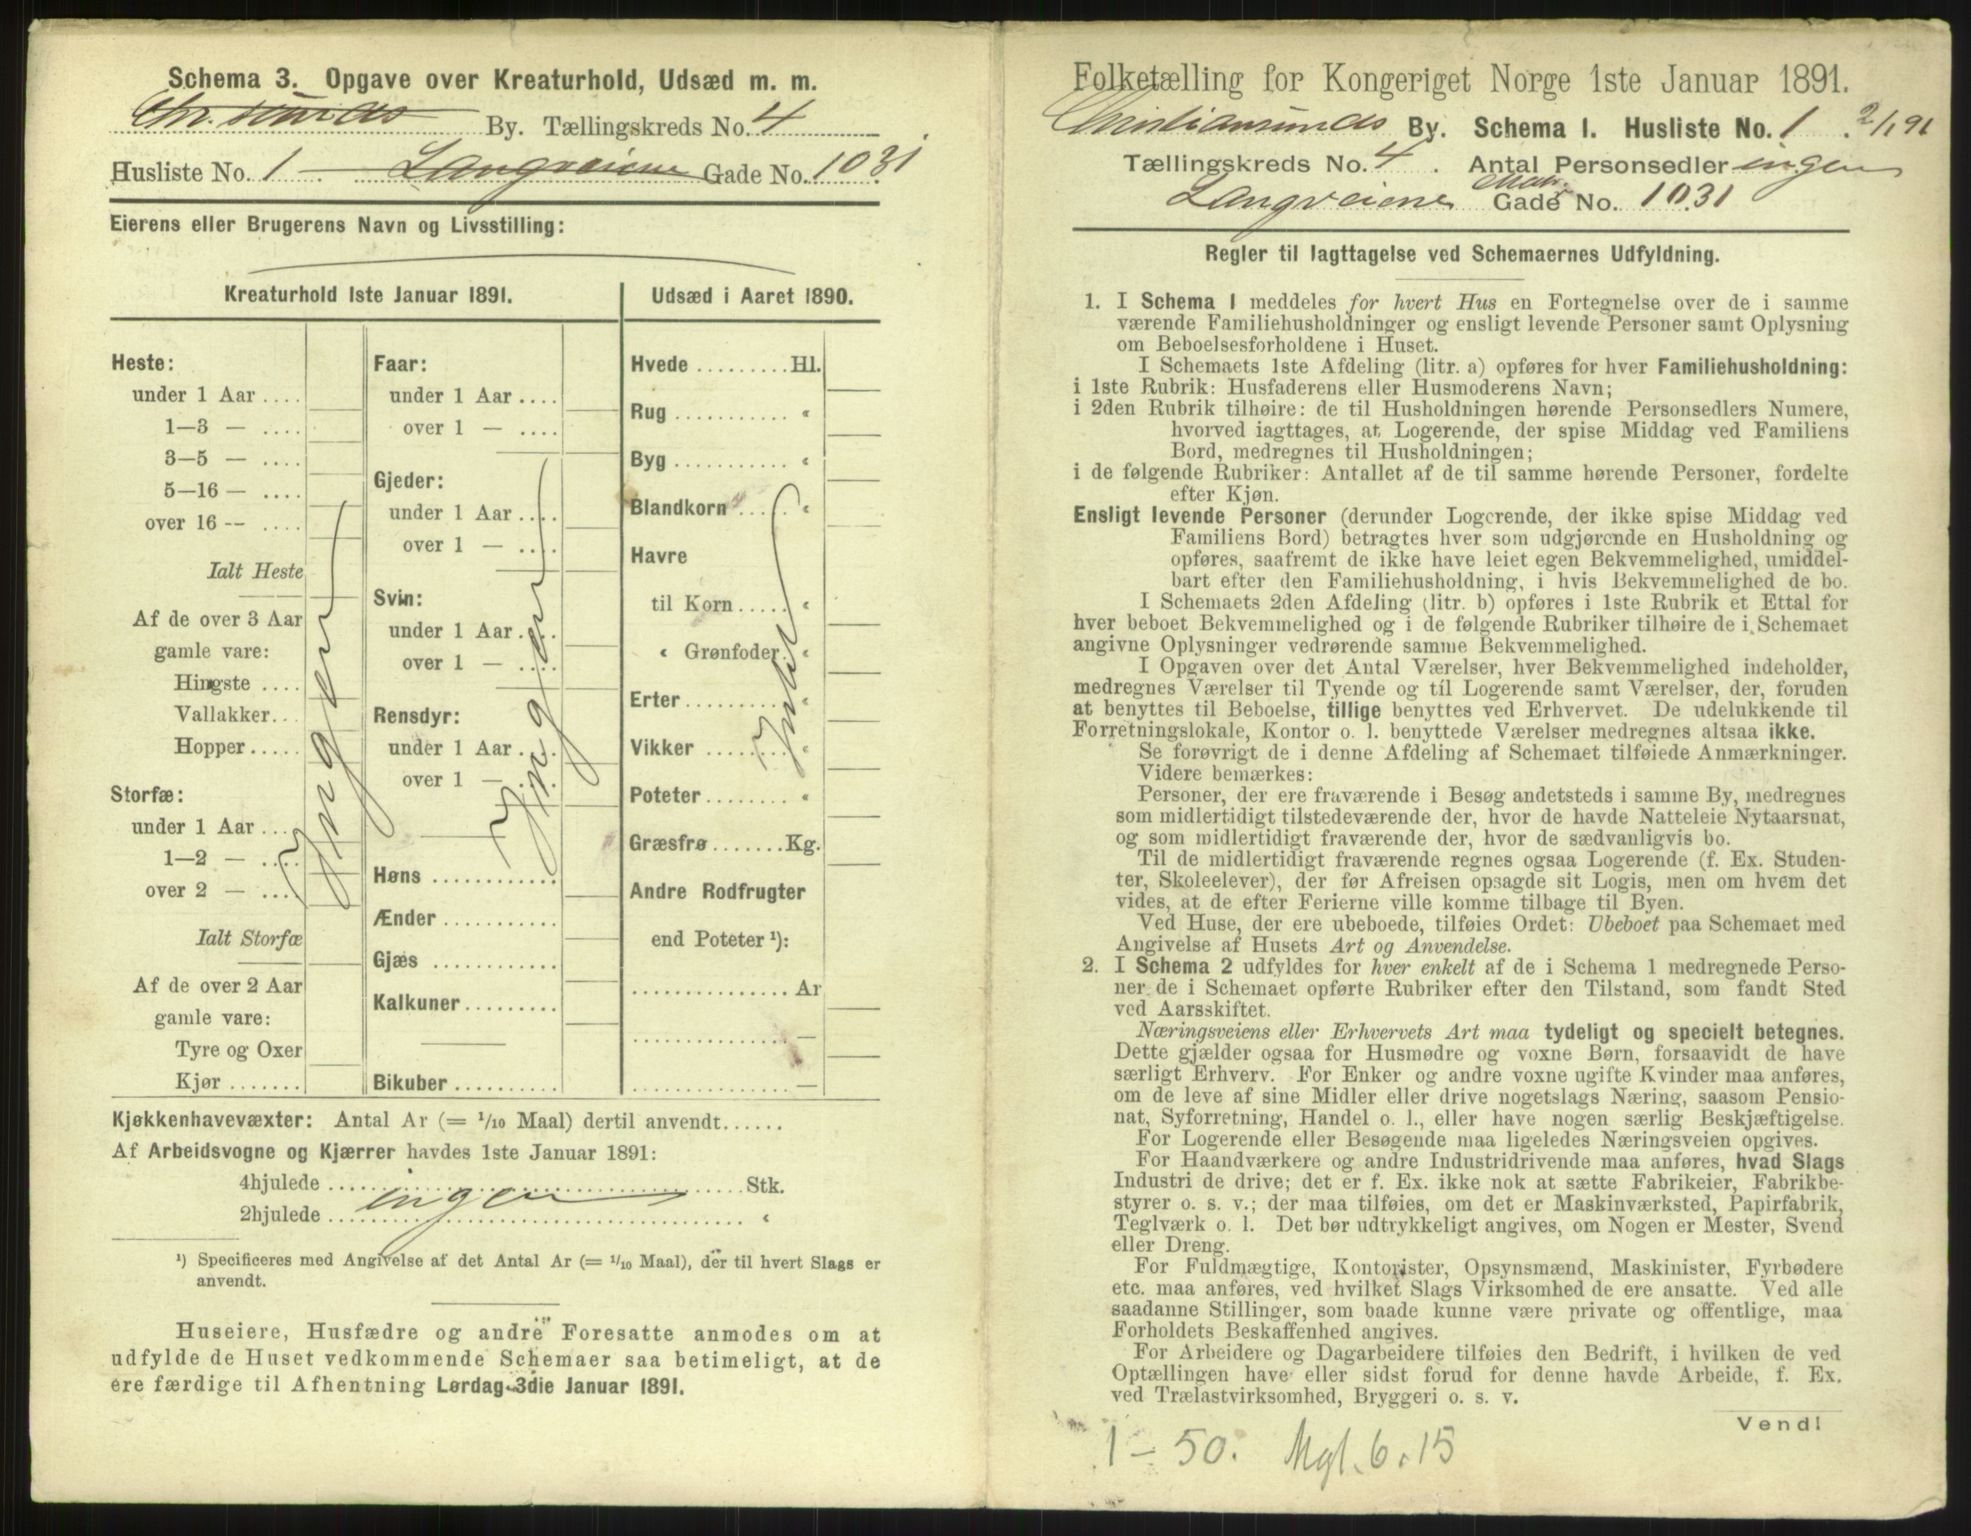 Schema 3. Opgave over Kreaturhold, Udsæd m. m.
Chr.sunds By. Tællingskreds No. 4
Husliste No. 1 Langveiene Gade No. 1031
Eierens eller Brugerens Navn og Livsstilling:
Kreaturhold 1ste Januar 1891.
Heste:
under 1 Aar ....
1—3 — ....
3—5 — ....
5—16 — ....
over 16 -- ....
Ialt Heste
Af de over 3 Aar
gamle vare:
Hingste ....
Vallakker...
Hopper.....
Storfæ:
under 1 Aar ...
1—2 — ....
over 2 — ...
Ialt Storfæ
Af de over 2 Aar
gamle vare:
Tyre og Oxer
Kjør .......
Ingen
Faar:
under 1 Aar ....
over 1 — ....
Gjeder:
under 1 Aar ....
over 1 — ....
Svin:
under 1 Aar ....
over 1 — ....
Rensdyr:
under 1 Aar ....
over 1 — ....
Høns ............
Ænder ...........
Gjæs ............
Kalkuner.........
Bikuber ..........
Ingen
Udsæd i Aaret 1890.
Hvede .........Hl.
Rug ........... «
Byg ........... «
Blandkorn ..... «
Havre
til Korn..... «
« Grønfoder. «
Erter.......... «
Vikker ........ «
Poteter........ «
Græsfrø.......Kg.
Andre Rodfrugter
end Poteter ¹):
............... Ar
............... —
............... —
Intet
Kjøkkenhavevæxter: Antal Ar (= 1/10 Maal) dertil anvendt......
Af Arbeidsvogne og Kjærrer havdes 1ste Januar 1891:
4hjulede ........ Stk.
ingen
2hjulede ........ «
¹) Specificeres med Angivelse af det Antal Ar (= 1/10 Maal), der til hvert Slags er
anvendt.
Huseiere, Husfædre og andre Foresatte anmodes om at
udfylde de Huset vedkommende Schemaer saa betimeligt, at de
ere færdige til Afhentning Lørdag 3die Januar 1891.
Folketælling for Kongeriget Norge 1ste Januar 1891.
Christiansunds By. Schema 1. Husliste No. 1 . 2/1 91
Tællingskreds No. 4 . Antal Personsedler ingen
Matr.
Langveiene Gade No. 1031
Regler til Iagttagelse ved Schemaernes Udfyldning.
1. I Schema 1 meddeles for hvert Hus en Fortegnelse over de i samme
værende Familiehusholdninger og ensligt levende Personer samt Oplysning
om Beboelsesforholdene i Huset.
I Schemaets 1ste Afdeling (litr. a) opføres for hver Familiehusholdning:
i 1ste Rubrik: Husfaderens eller Husmoderens Navn;
i 2den Rubrik tilhøire: de til Husholdningen hørende Personsedlers Numere,
hvorved iagttages, at Logerende, der spise Middag ved Familiens
Bord, medregnes til Husholdningen;
i de følgende Rubriker: Antallet af de til samme hørende Personer, fordelte
efter Kjøn.
Ensligt levende Personer (derunder Logerende, der ikke spise Middag ved
Familiens Bord) betragtes hver som udgjørende en Husholdning og
opføres, saafremt de ikke have leiet egen Bekvemmelighed, umiddel-
bart efter den Familiehusholdning, i hvis Bekvemmelighed de bo.
I Schemaets 2den Afdeling (litr. b) opføres i 1ste Rubrik et Ettal for
hver beboet Bekvemmelighed og i de følgende Rubriker tilhøire de i Schemaet
angivne Oplysninger vedrørende samme Bekvemmelighed.
I Opgaven over det Antal Værelser, hver Bekvemmelighed indeholder,
medregnes Værelser til Tyende og til Logerende samt Værelser, der, foruden
at benyttes til Beboelse, tillige benyttes ved Erhvervet. De udelukkende til
Forretningslokale, Kontor o. l. benyttede Værelser medregnes altsaa ikke.
Se forøvrigt de i denne Afdeling af Schemaet tilføiede Anmærkninger.
Videre bemærkes:
Personer, der ere fraværende i Besøg andetsteds i samme By, medregnes
som midlertidigt tilstedeværende der, hvor de havde Natteleie Nytaarsnat,
og som midlertidigt fraværende der, hvor de sædvanligvis bo.
Til de midlertidigt fraværende regnes ogsaa Logerende (f. Ex. Studen-
ter, Skoleelever), der før Afreisen opsagde sit Logis, men om hvem det
vides, at de efter Ferierne ville komme tilbage til Byen.
Ved Huse, der ere ubeboede, tilføies Ordet: Ubeboet paa Schemaet med
Angivelse af Husets Art og Anvendelse.
2. I Schema 2 udfyldes for hver enkelt af de i Schema 1 medregnede Perso-
ner de i Schemaet opførte Rubriker efter den Tilstand, som fandt Sted
ved Aarsskiftet.
Næringsveiens eller Erhvervets Art maa tydeligt og specielt betegnes.
Dette gjælder ogsaa for Husmødre og voxne Børn, forsaavidt de have
særligt Erhverv. For Enker og andre voxne ugifte Kvinder maa anføres,
om de leve af sine Midler eller drive nogetslags Næring, saasom Pensio-
nat, Syforretning, Handel o. l., eller have nogen særlig Beskjæftigelse.
For Logerende eller Besøgende maa ligeledes Næringsveien opgives.
For Haandværkere og andre Industridrivende maa anføres, hvad Slags
Industri de drive; det er f. Ex. ikke nok at sætte Fabrikeier, Fabrikbe-
styrer o. s. v.; der maa tilføies, om det er Maskinværksted, Papirfabrik,
Teglværk o. l. Det bør udtrykkeligt angives, om Nogen er Mester, Svend
eller Dreng.
For Fuldmægtige, Kontorister, Opsynsmænd, Maskinister, Fyrbødere
etc. maa anføres, ved hvilket Slags Virksomhed de ere ansatte. Ved alle
saadanne Stillinger, som baade kunne være private og offentlige, maa
Forholdets Beskaffenhed angives.
For Arbeidere og Dagarbeidere tilføies den Bedrift, i hvilken de ved
Optællingen have eller sidst forud for denne havde Arbeide, f. Ex.
ved Trælastvirksomhed, Bryggeri o. s. v.
Vend!
1 – 50. Mgl. 6. 15